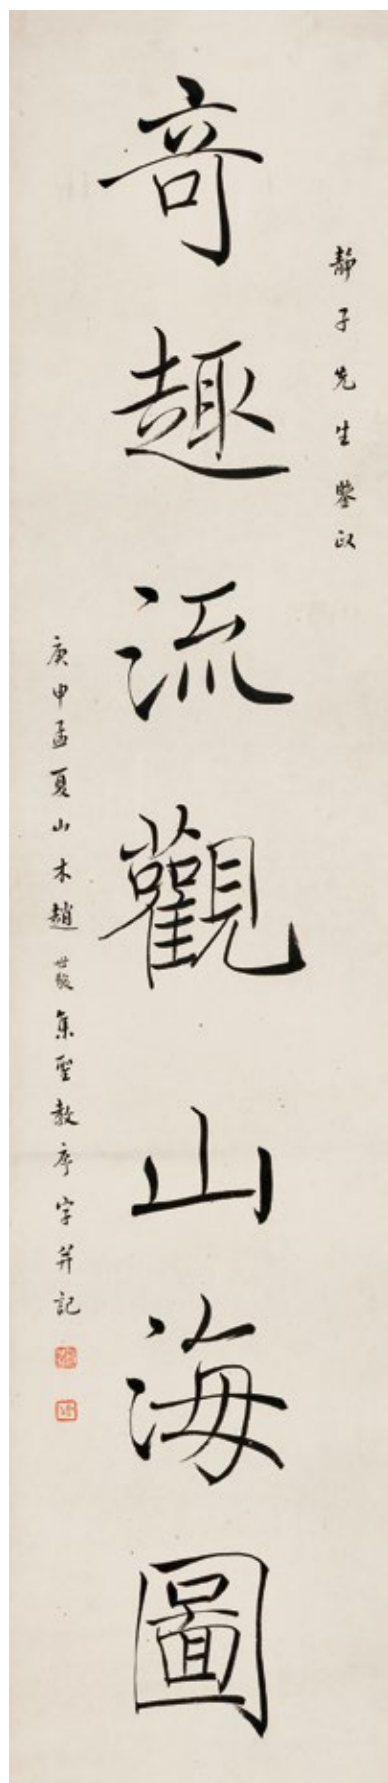 靜子先生鑒政
奇趣流觀山海圖
庚申孟夏山木趙世駿集聖教序字并記